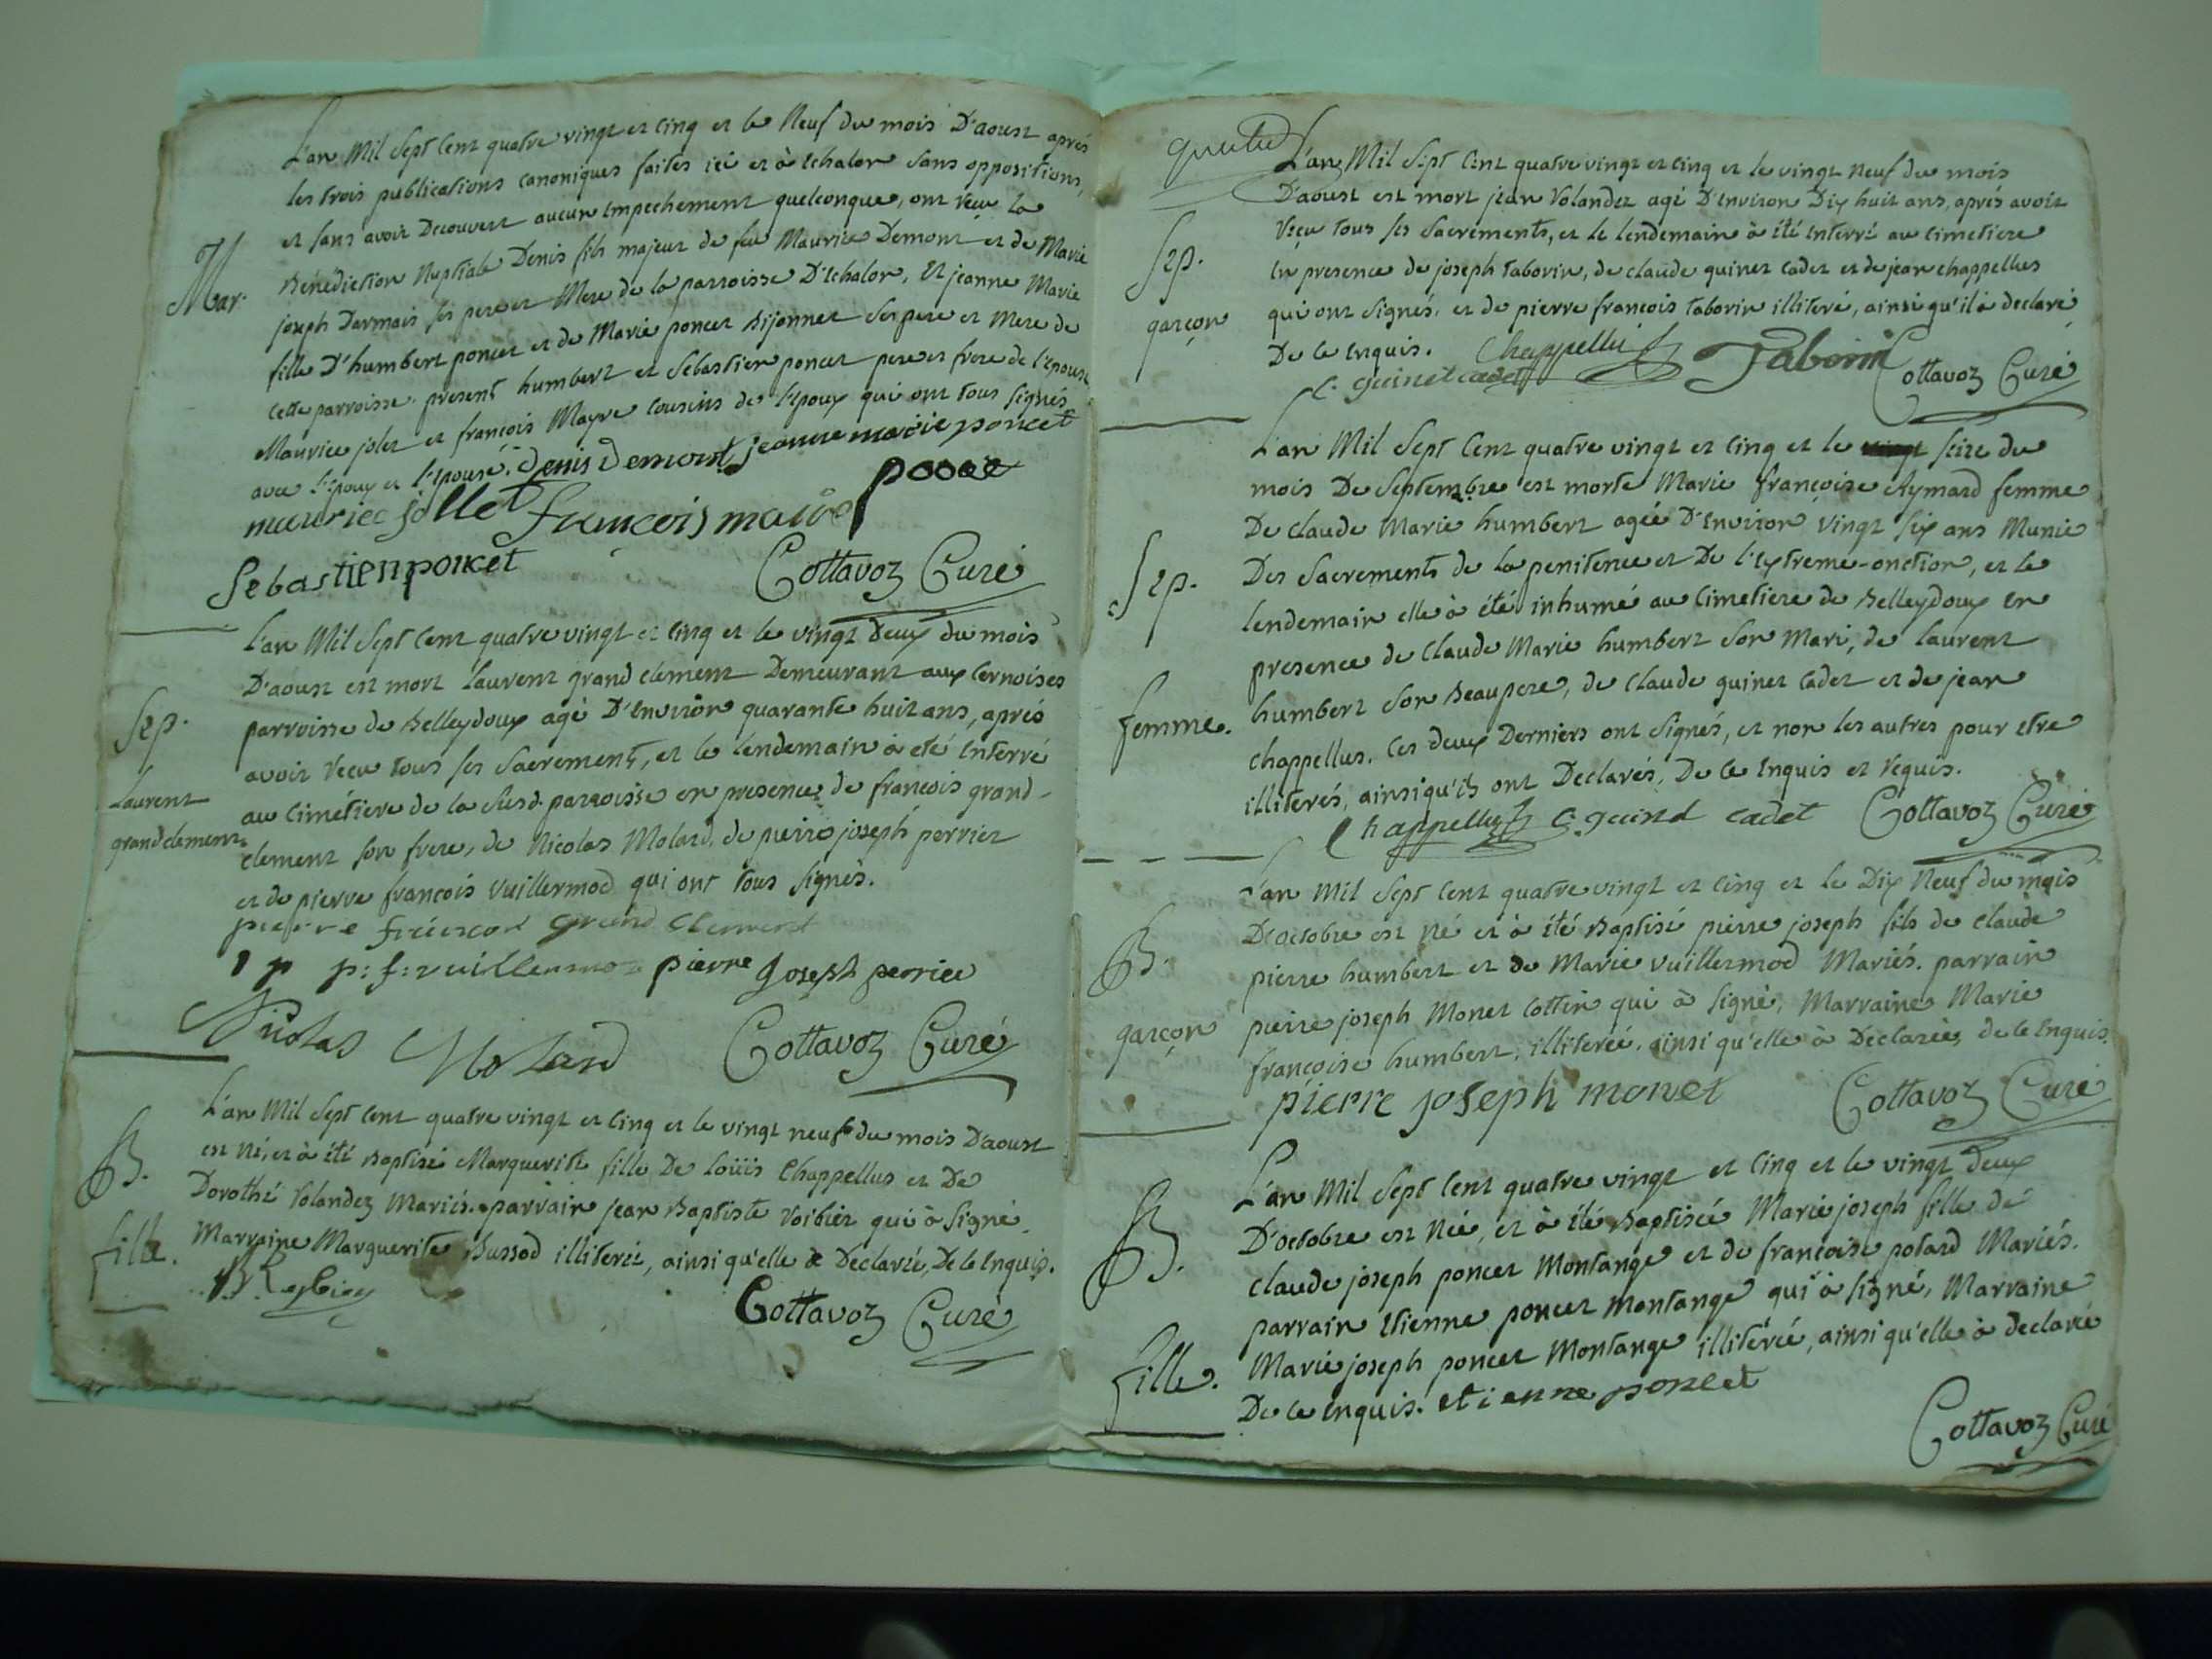 L'an Mil Sept Cent quatre vingt et cinq et le Neuf du mois D'aoust aprés
les trois publications canoniques faites ici et à Echalon sans oppositions,
et sans avoir Decouvert aucun Empechement quelconque, ont reçu la
Mar.
Bénédiction Nuptiale Denis fils majeur de feu Maurice Demont et de Marie
joseph Darmais ses pere et Mere de la parroisse D'Echalon, Et jeanne Marie
fille D'humbert poncet et de Marie poncet Bijonnet Ses pere et Mere de
cette parroisse. present humbert et Sebastien poncet pere et frere de l'Epouse
Maurice jolet et françois Mayre cousins de l'Epoux qui ont tous signés
avec l'Epoux et l'Epouse. denis demont jeanne marie poncet
mauriec jollet francois poncet
Sebastien poncet Cottavoz Curé
L'an Mil Sept Cent quatre vingt et cinq et le vingt Deux du mois
D'aoust est mort Laurent grand clement Demeurant aux Cernoises
Sep.
parroisse de Belleydoux agé D'Environ quarante huit ans, aprés
avoir reçu tous ses Sacrements, et le lendemain à eté Enterré
Laurent
au Cimétiere de la susd. parroisse en presence de francois grand-
grandclement
clement son frere, de Nicolas Molard, de pierre joseph perrier
et de pierre francois vuillermod qui ont tous signés.
grand clement
p: f: vuillermoz pierre joseph perrier
Nicolas Molard Cottavoz Curé
L'an Mil Sept Cent quatre vingt et cinq et le vingt neuf du mois D'aoust
B.
est né, et à été Baptisé Marguerite fille De Loüis Chappellus et De
Dorothé Volandez Mariés. parrain jean Baptiste Voibier qui à signé.
fille.
Marraine Marguerite Bussod illiterée, ainsi qu'elle à Declarée, De ce Enquis.
Cottavoz Curé
L'an Mil Sept Cent quatre vingt et cinq et le vingt Neuf du mois
D'aoust est mort jean Volandez agé D'Environ Dix huit ans, aprés avoir
Sep.
reçu tous ses Sacrements, et le lendemain à été Enterré au cimetiere
En presence de joseph taborin, de claude guinet cadet et de jean chappellus
garçon
qui ont signés, et de pierre francois taborin illiteré, ainsi qu'il à declaré
De ce Enquis. Chappellus Taborin
C. guinet cadet Cottavoz Curé
L'an Mil Sept Cent quatre vingt et cinq et le seize du
mois De Septembre est morte Marie françoise Aymard femme
De Claude Marie humbert agée D'Environ vingt six ans Munie
Sep.
Des Sacrements de la penitence et De l'Extreme-onction, et le
lendemain elle à été inhumé au Cimetiere de Belleydoux En
presence de Claude Marie humbert Son Mari, de laurent
femme.
humbert Son Beaupere, de Claude guinet Cadet et de jean
chappellus. Ces deux Derniers ont signés, et non les autres pour etre
illiterés, ainsi qu'ils ont Declarés, De ce Enquis et requis.
Chappellus C. guinet cadet Cottavoz Curé
L'an Mil Sept Cent quatre vingt et cinq et le Dix Neuf du mois
D'octobre est né et à été Baptisé pierre joseph fils de Claude
B.
pierre humbert et de Marie vuillermod Mariés. parrain
pierre joseph Monet Cottin qui à signé, Marraine Marie
garçon
françoise humbert, illiterée, ainsi qu'elle à Declarée, de ce Enquis.
pierre joseph monet Cottavoz Curé
L'an Mil Sept Cent quatre vingt et cinq et le vingt Deux
B.
D'octobre est Née, et à été Baptisée Marie joseph fille de
Claude joseph poncet Montange et de francoise potard Mariés.
parrain Etienne poncet Montange qui à signé, Marraine
fille.
Marie joseph poncet Montange illiterée, ainsi qu'elle à declarée
De ce Enquis. etienne poncet
Cottavoz Curé